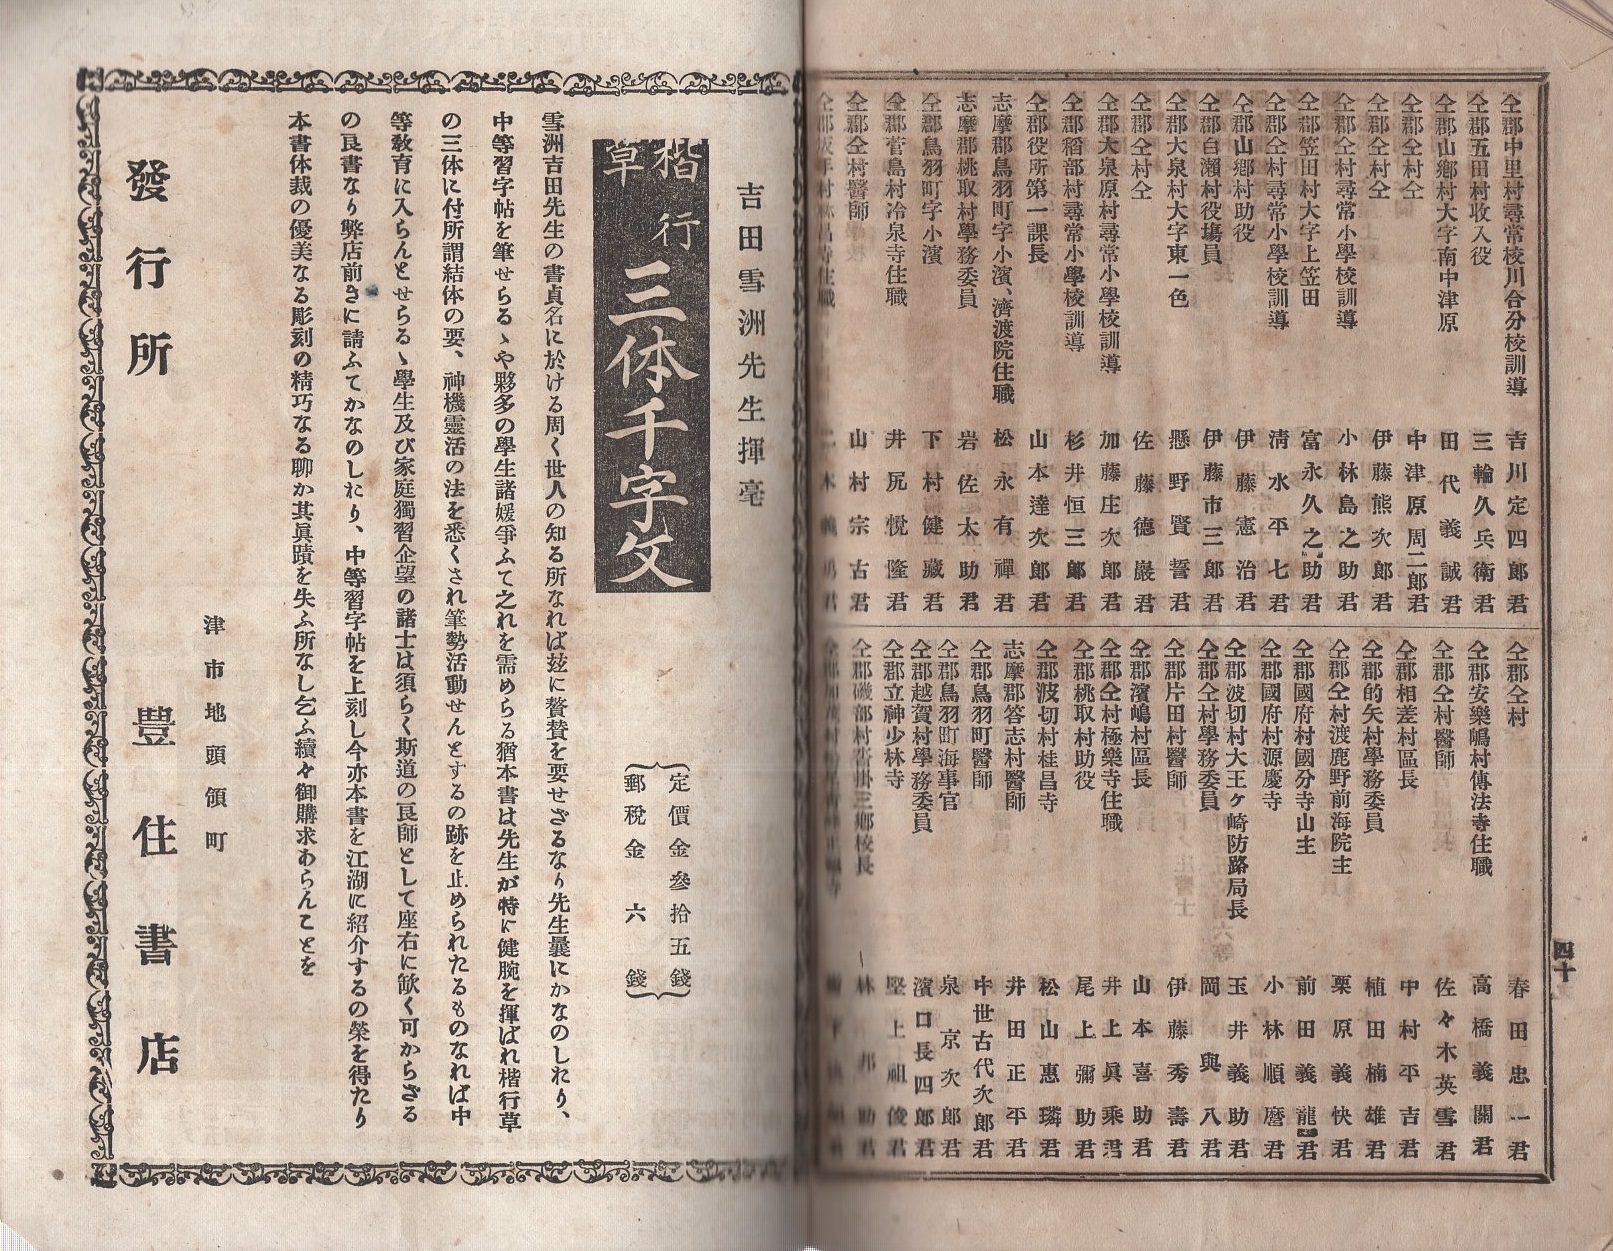 四十
仝郡中里村尋常校川合分校訓導 吉川定四郎君
仝郡五田村收入役 三輪久兵衛君
仝郡山郷村大字南中津原 田代義誠君
仝郡仝村仝 中津原周二郎君
仝郡仝村仝 伊藤熊次郎君
仝郡仝村尋常小學校訓導 小林島之助君
仝郡笠田村大字上笠田 富永久之助君
仝郡仝村尋常小學校訓導 清水平七君
仝郡山郷村助役 伊藤憲治君
仝郡白瀬村役塲員 伊藤市三郎君
仝郡大泉村大字東一色 懸野賢誓君
仝郡仝村仝 佐藤德巖君
仝郡大泉原村尋常小學校訓導 加藤庄次郎君
仝郡稻部村尋常小學校訓導 杉井恒三郎君
仝郡役所第一課長 山本達次郎君
志摩郡鳥羽町字小濱、濟渡院住職 松永有禪君
志摩郡桃取村學務委員 岩佐太助君
仝郡鳥羽町字小濱 下村健藏君
仝郡菅島村冷泉寺住職 井尻悅隆君
仝郡仝村醫師 山村宗古君
仝郡仝村 春田忠一君
仝郡安樂嶋村傳法寺住職 高橋義關君
仝郡仝村醫師 佐々木英雪君
仝郡相差村區長 中村平吉君
仝郡的矢村學務委員 植田楠雄君
仝郡仝村渡鹿野前海院主 栗原義快君
仝郡國府村國分寺山主 前田義龍君
仝郡國府村源慶寺 小林順麿君
仝郡波切村大王ヶ崎防路局長 玉井義助君
仝郡仝村學務委員 岡與八君
仝郡片田村醫師 伊藤秀壽君
仝郡濱嶋村區長 山本喜助君
仝郡仝村極樂寺住職 井上眞乘君
仝郡桃取村助役 尾上彌助君
仝郡波切村桂昌寺 松山惠璘君
志摩郡答志村醫師 井田正平君
仝郡鳥羽町醫師 中世古代次郎君
仝郡鳥羽町海事官 泉京次郎君
仝郡越賀村學務委員 濱口長四郎君
仝郡立神少林寺 堅上祖俊君
仝郡磯部村沓掛三郷校長 林邦助君
吉田雪洲先生揮毫
楷行草 三体千字文
定價金參拾五錢
郵稅金六錢
雪洲吉田先生の書貞名に於ける周く世人の知る所なれば玆に贅賛を要せざるなり先生曩にかなのしをり、
中等習字帖を筆せらるゝや夥多の學生諸媛爭ふて之れを需めらる猶本書は先生が特に健腕を揮ばれ楷行草
の三体に付所謂結体の要、神機靈活の法を悉くされ筆勢活動せんとするの跡を止められたるものなれば中
等敎育に入らんとせらるゝ學生及び家庭獨習企望の諸士は須らく斯道の良師として座右に歓く可からざる
の良書なり弊店前きに請ふてかなのしをり、中等習字帖を上刻し今亦本書を江湖に紹介するの榮を得たり
本書体裁の優美なる彫刻の精巧なる聊か其眞蹟を失ふ所なし乞ふ續々御購求あらんことを
津市地頭領町
發行所 豊住書店